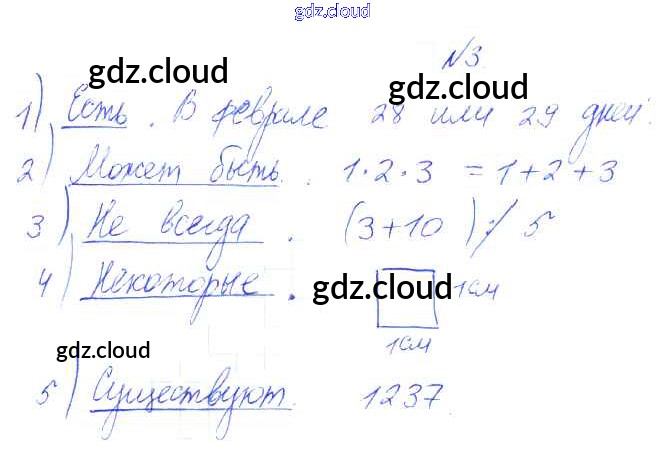 gdz.cloud
№3.
gdz.cloud
gdz.cloud
1) Есть. В феврале 28 или 29 дней.
2) Может быть. 1·2·3 = 1+2+3
3) Не всегда. (3+10) ⁒ 5
4) Некоторые. 1см
gdz.cloud
1см
gdz.cloud
5) Существуют. 1237.